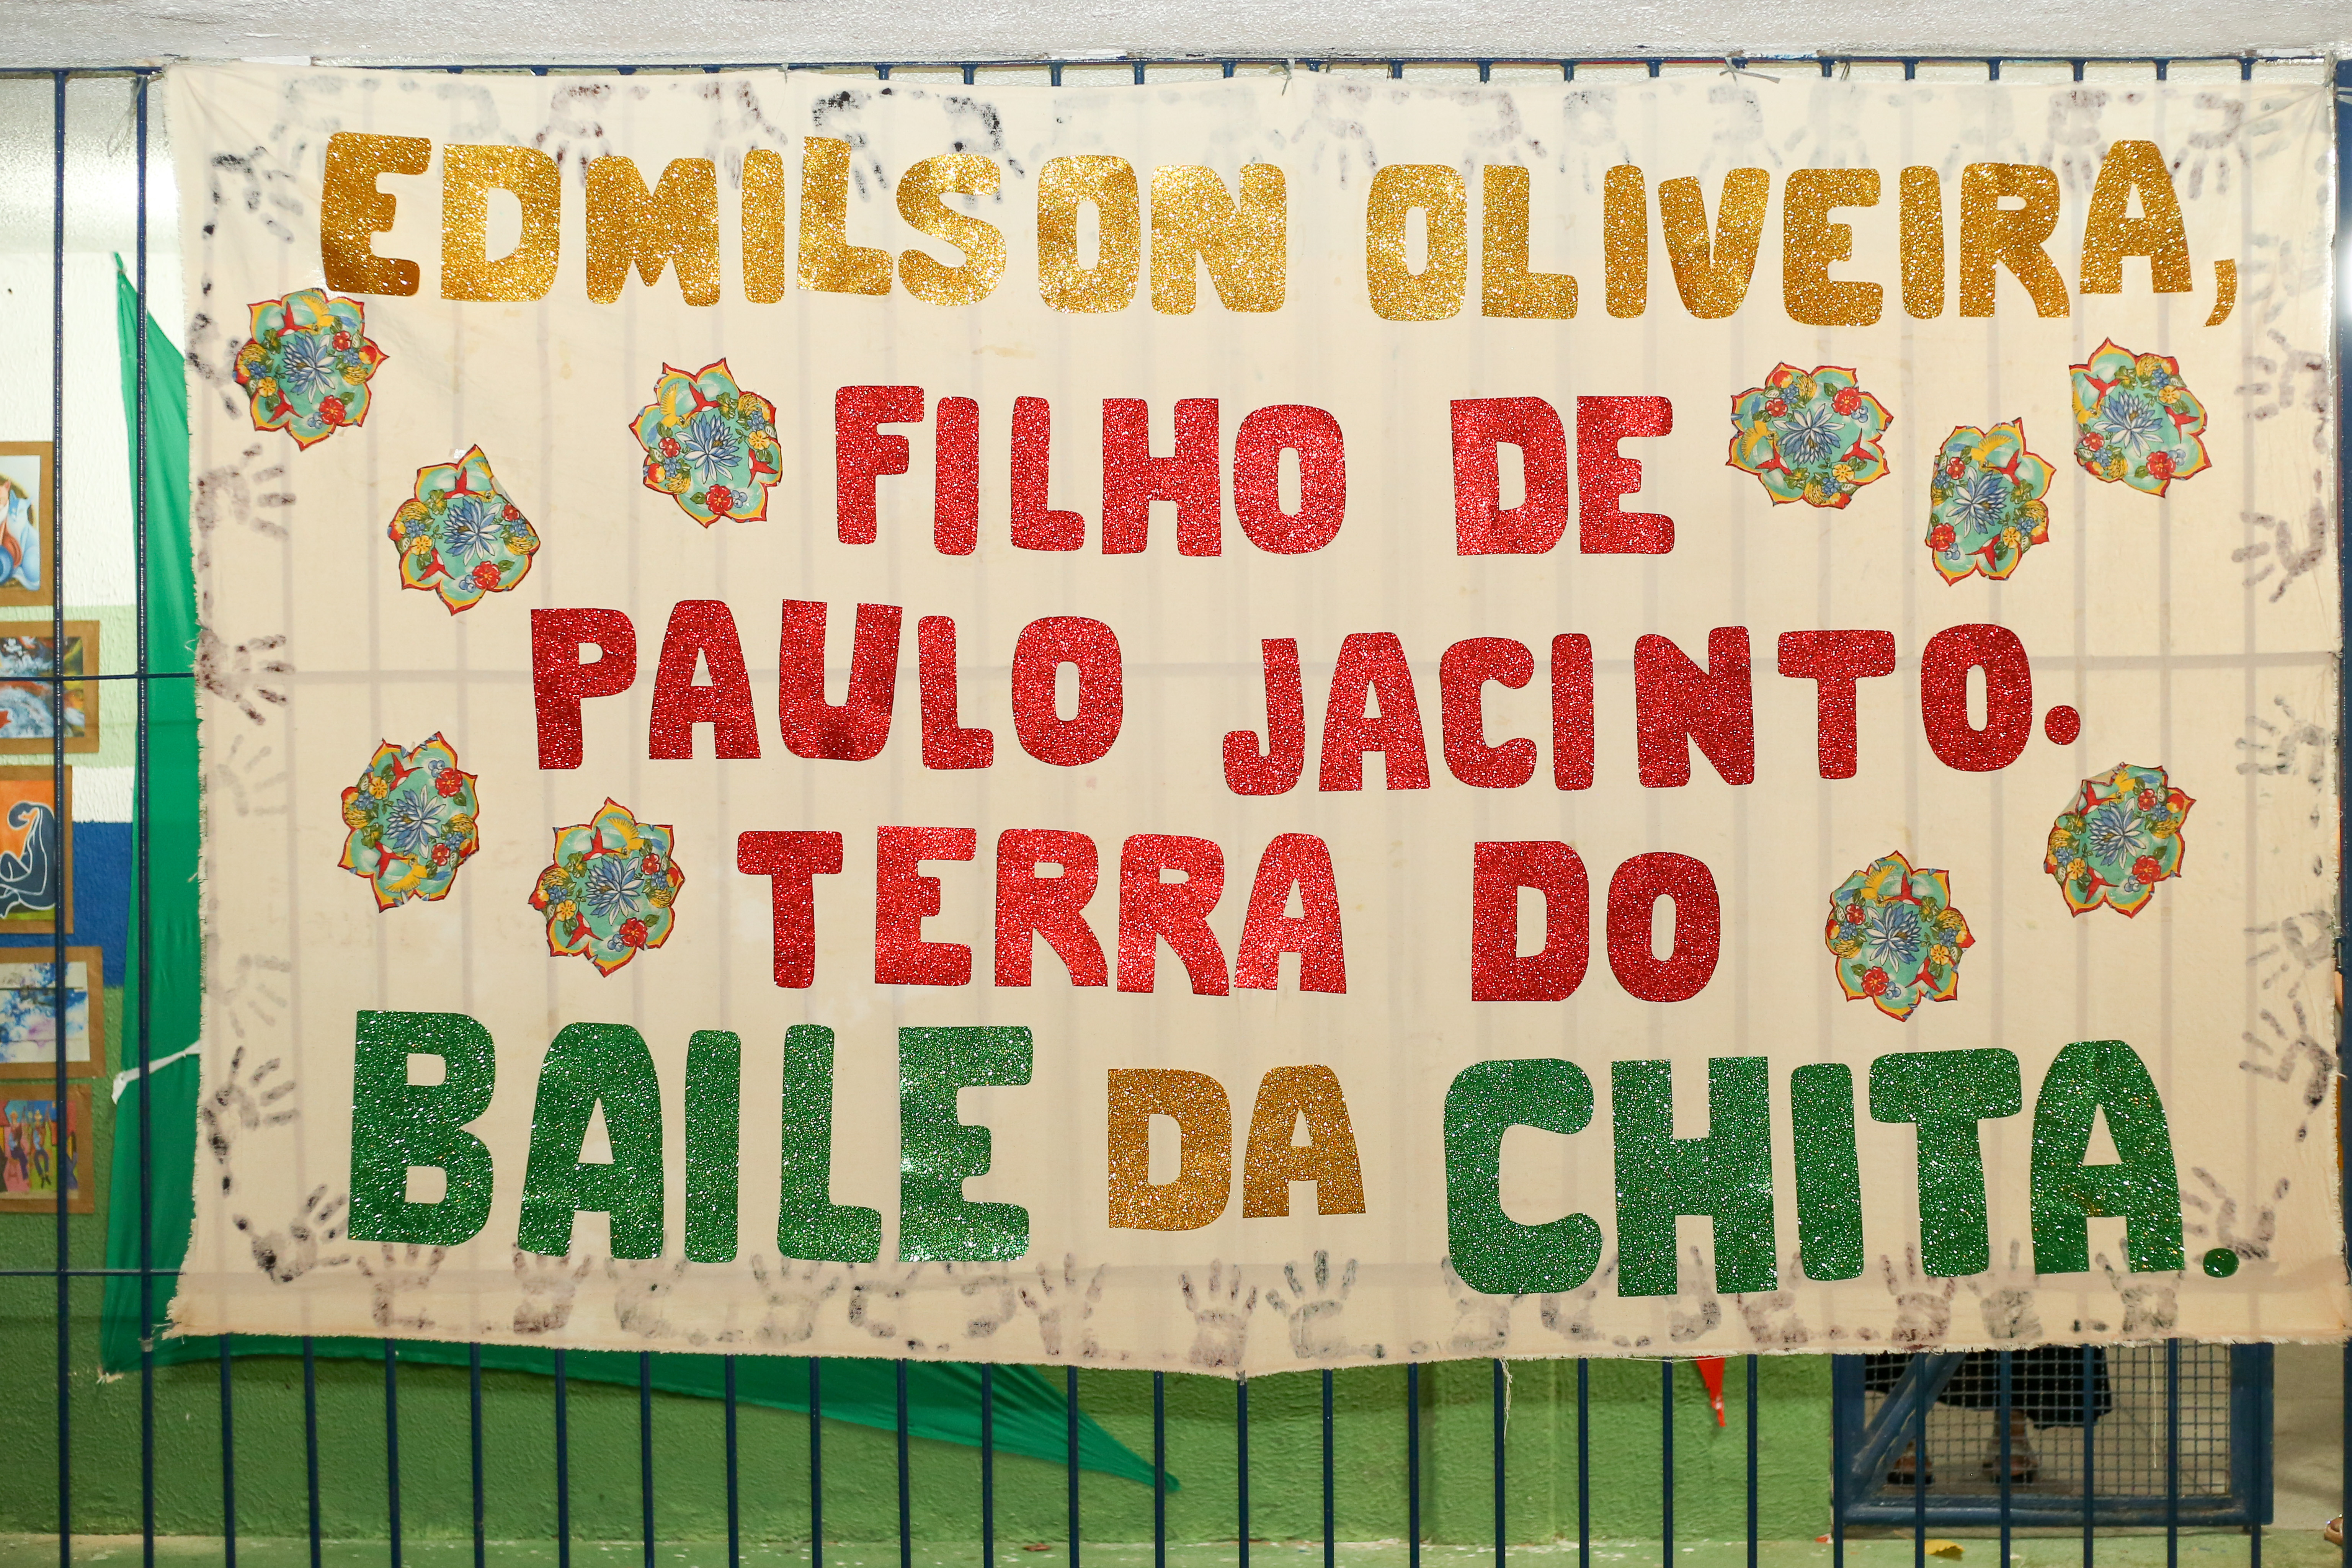 EDMILSON OLIVEIRA,
FILHO DE
PAULO JACINTO.
TERRA DO
BAILE DA CHITA.